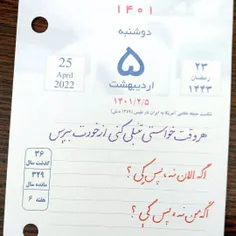 ۱۴۰۱
دوشنبه
۵
اردیبهشت
25
April
2022
۲۳
رمضان
۱۴۴۳
۱۴۰۱/۲/۵
شکست حمله نظامی آمریکا به ایران در طبس (۱۳۵۹ ه.ش)
هر وقت خواستی تنبلی کنی از خودت بپرس
۳۶
گذشت سال
۳۲۹
مانده سال
هفته ۶
اگه الان نه، پس کی؟
اگه من نه، پس کی؟